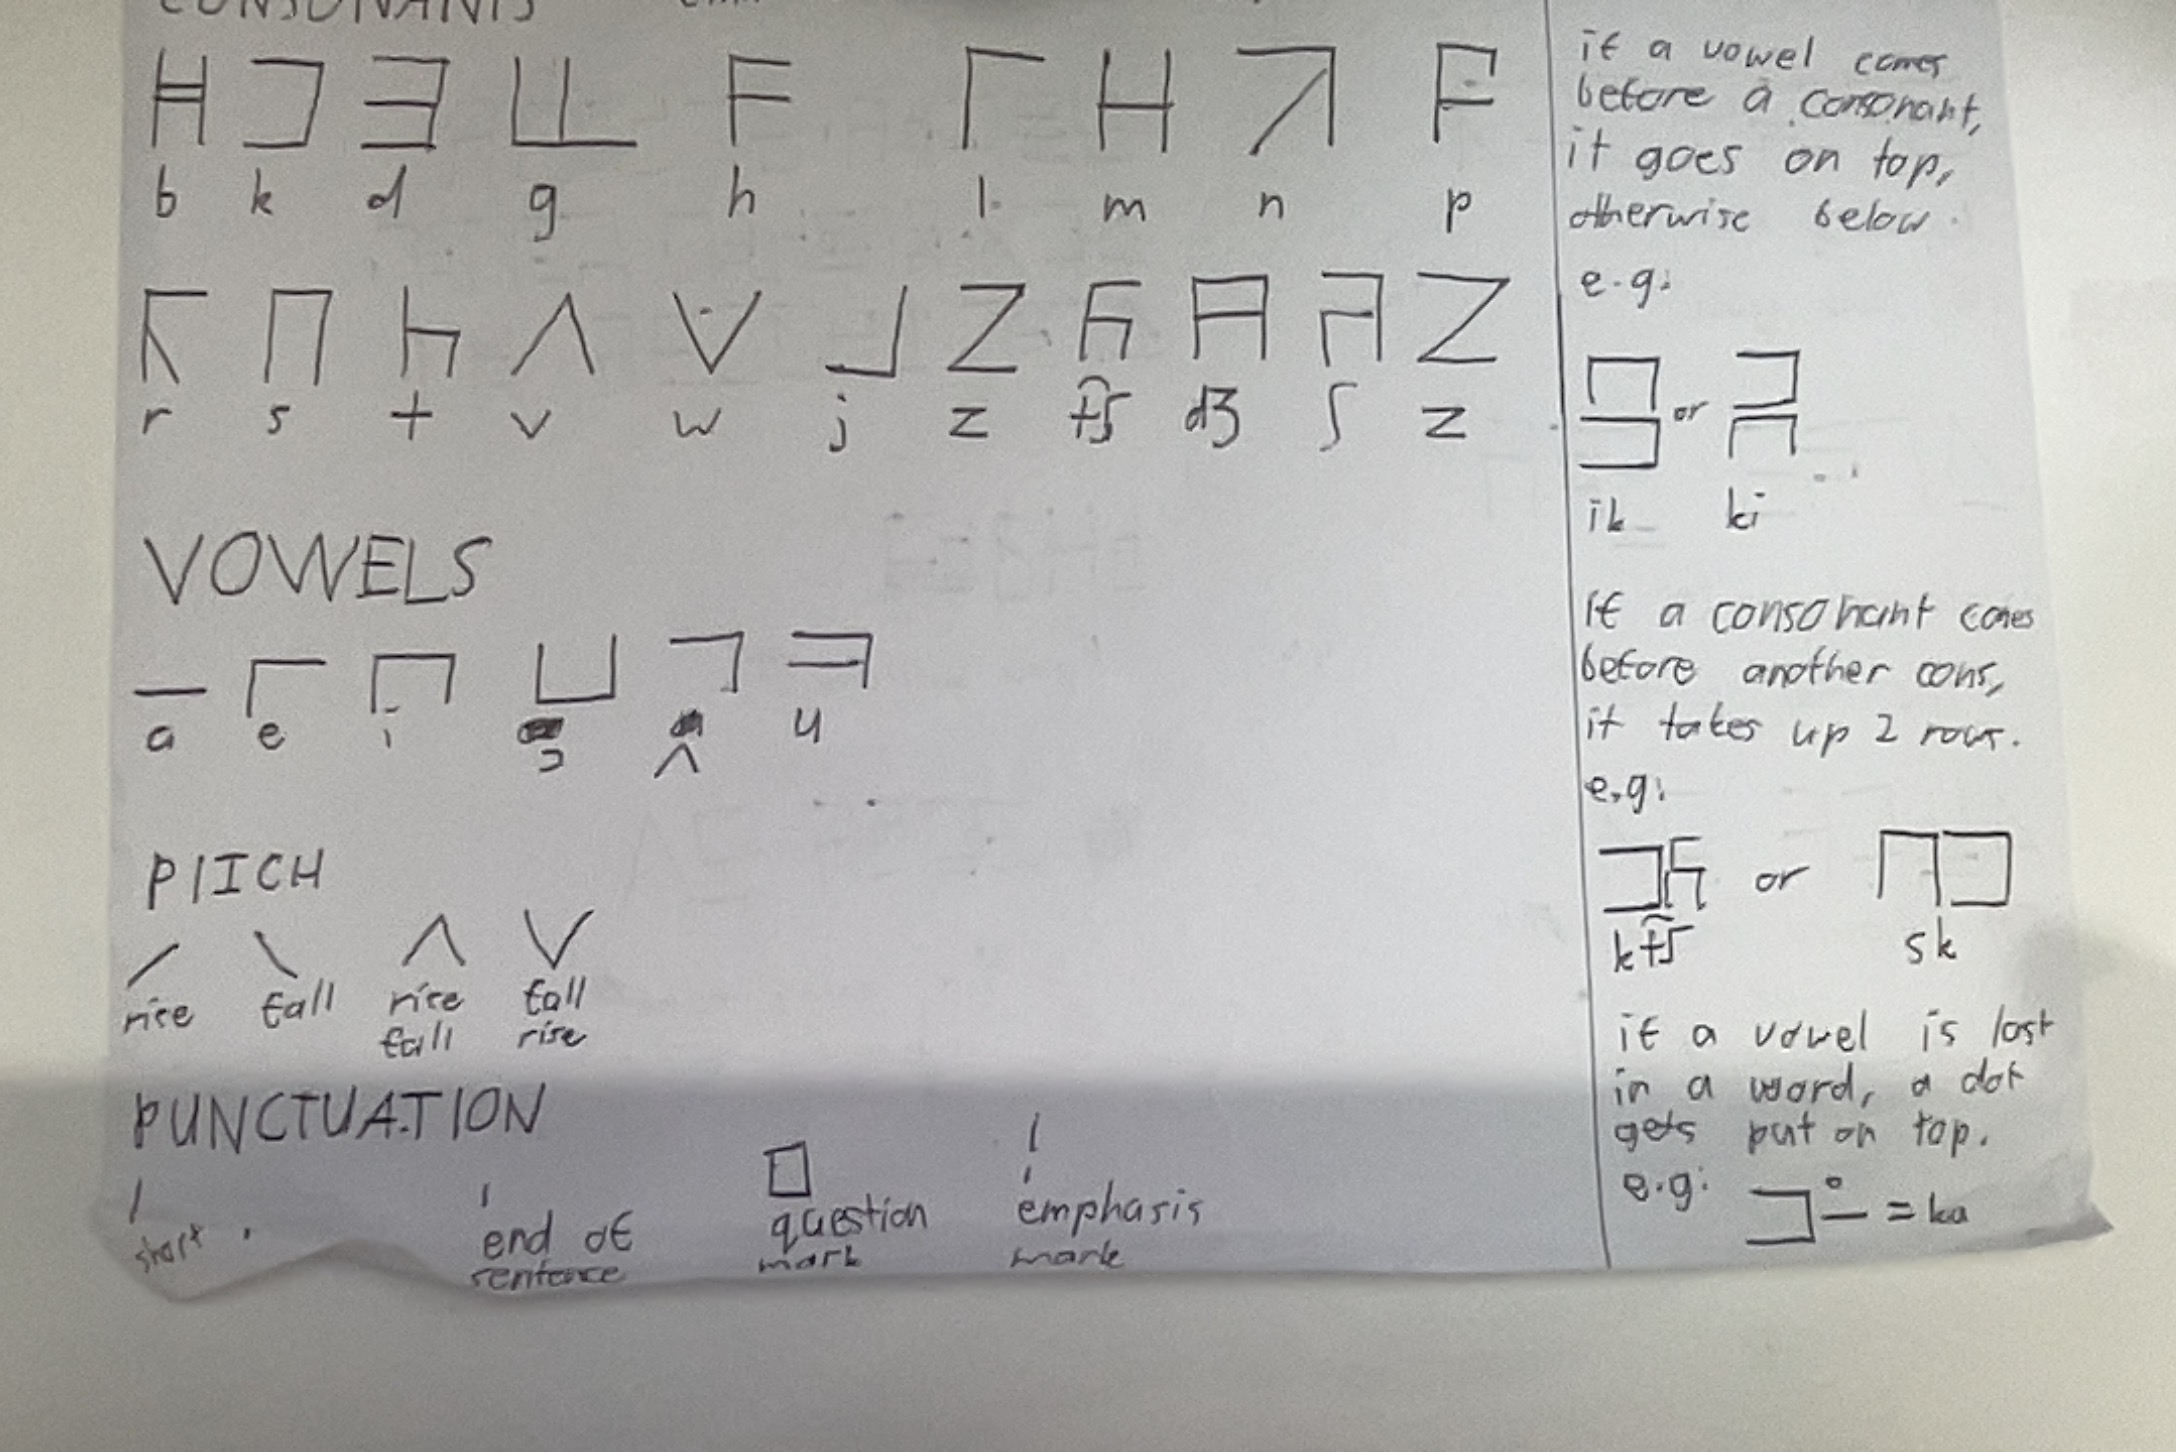 CONSONANTS
b k d g h l m n p
r s t v w j z t͡ʃ dʒ ʃ z
VOWELS
a e i ɔ ʌ u
PITCH
rise fall rise fall
fall rise
PUNCTUATION
start end of question emphasis
sentence mark mark
if a vowel comes
before a consonant,
it goes on top,
otherwise below.
e.g:
or
ik ki
If a consonant comes
before another cons,
it takes up 2 rows.
e.g:
or
kt͡ʃ sk
if a vowel is last
in a word, a dot
gets put on top.
e.g: = ka